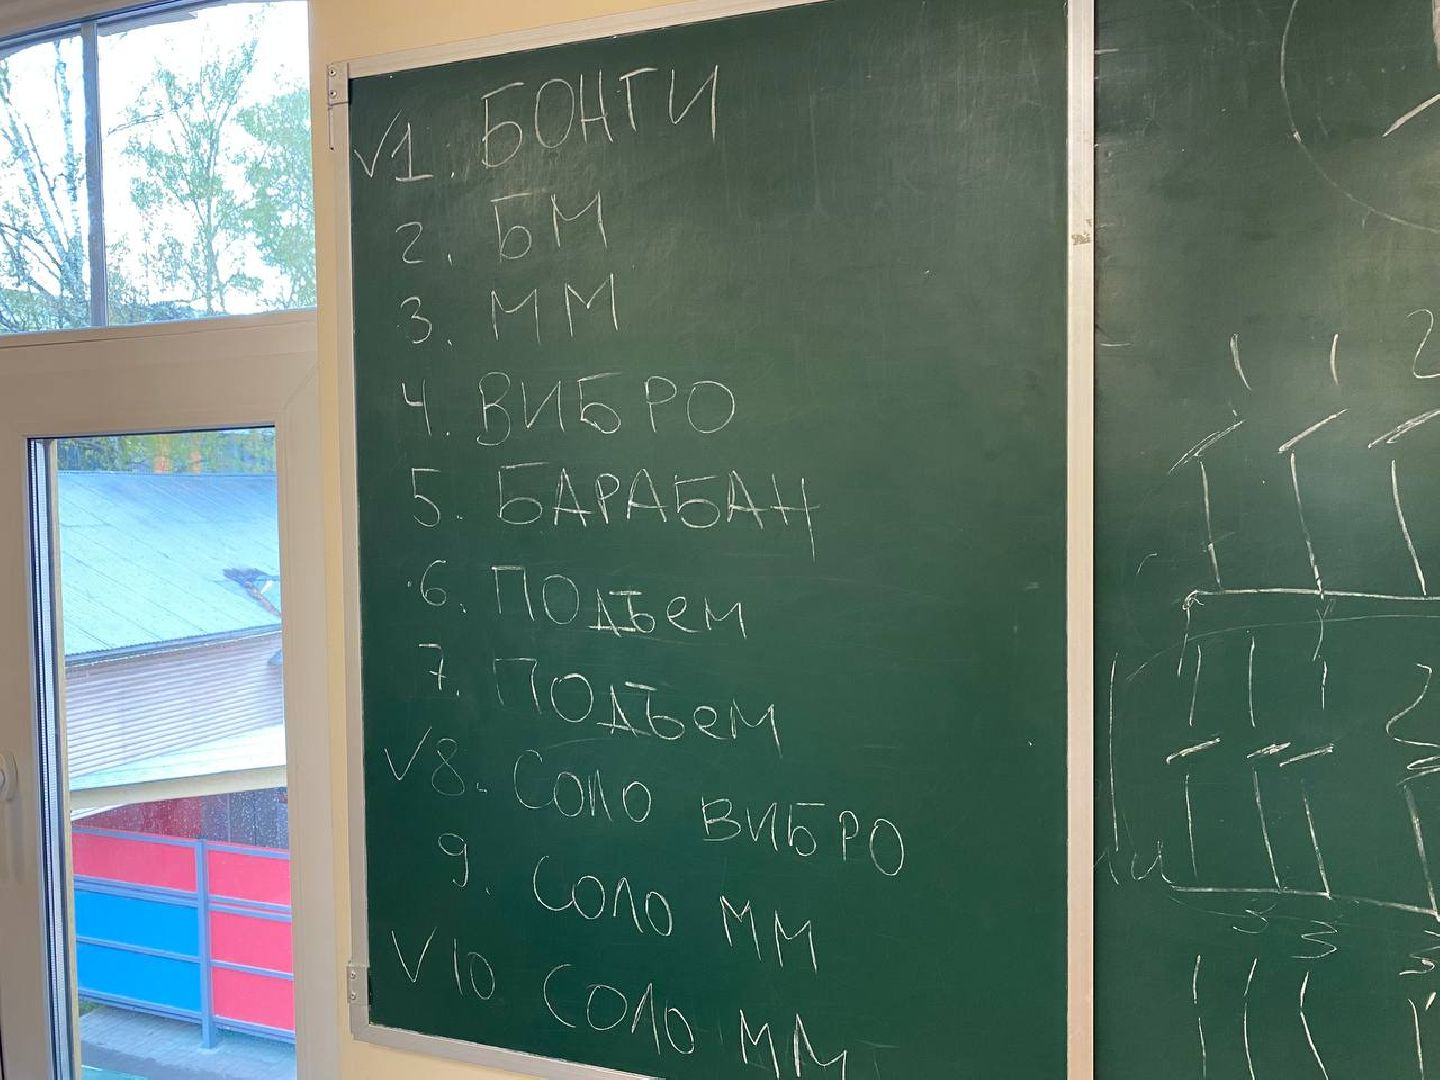 √1. БОНГИ
2. БМ
3. ММ
4. ВИБРО
5. БАРАБАН
6. ПОДЪем
7. ПОДЪем
√8. Соло ВИБРО
9. Соло ММ
√10 Соло ММ